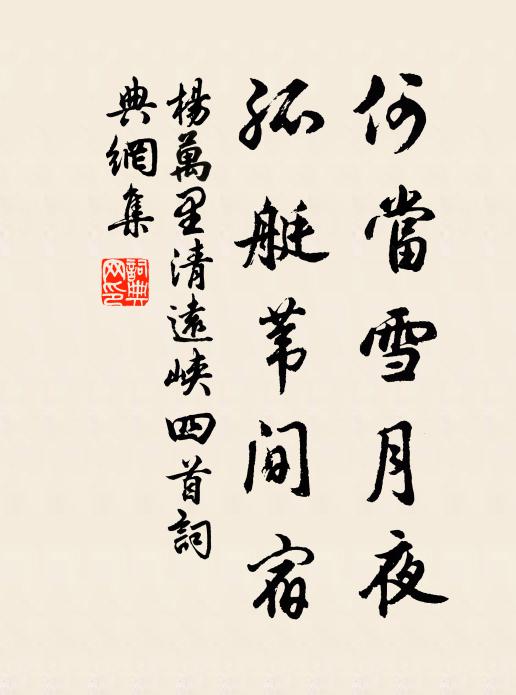 何當雪月夜
孤艇苇间宿
楊萬里清遠峽四首詞
典網集
詞典
网印